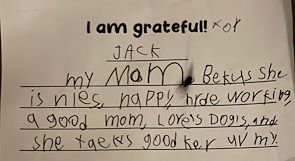 I am grateful! for
JACK
my Mom. Bekus she
is nies, happi, hrde working,
a good mom, Lovers Dogis, and
she taeks good ker uv my.